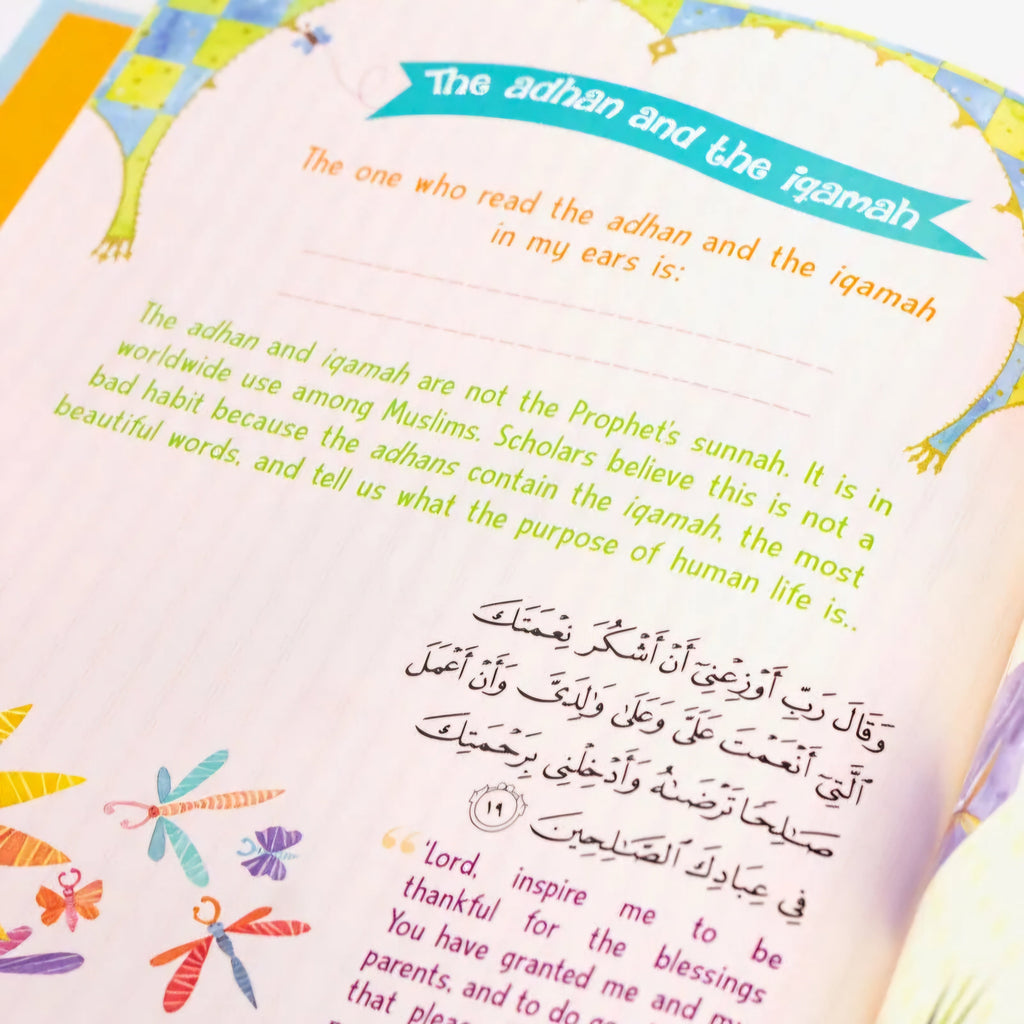 The adhan and the iqamah
The one who read the adhan and the iqamah
in my ears is:
The adhan and iqamah are not the Prophet's sunnah. It is in
worldwide use among Muslims. Scholars believe this is not a
bad habit because the adhans contain the iqamah, the most
beautiful words, and tell us what the purpose of human life is..
وَقَالَ رَبِّ أَوْزِعْنِىٓ أَنْ أَشْكُرَ نِعْمَتَكَ
ٱلَّتِىٓ أَنْعَمْتَ عَلَىَّ وَعَلَىٰ وَٰلِدَىَّ وَأَنْ أَعْمَلَ
صَـٰلِحًا تَرْضَىٰهُ وَأَدْخِلْنِى بِرَحْمَتِكَ
فِى عِبَادِكَ ٱلصَّـٰلِحِينَ ١٩
“'Lord, inspire me to be
thankful for the blessings
You have granted me and my
parents, and to do
that